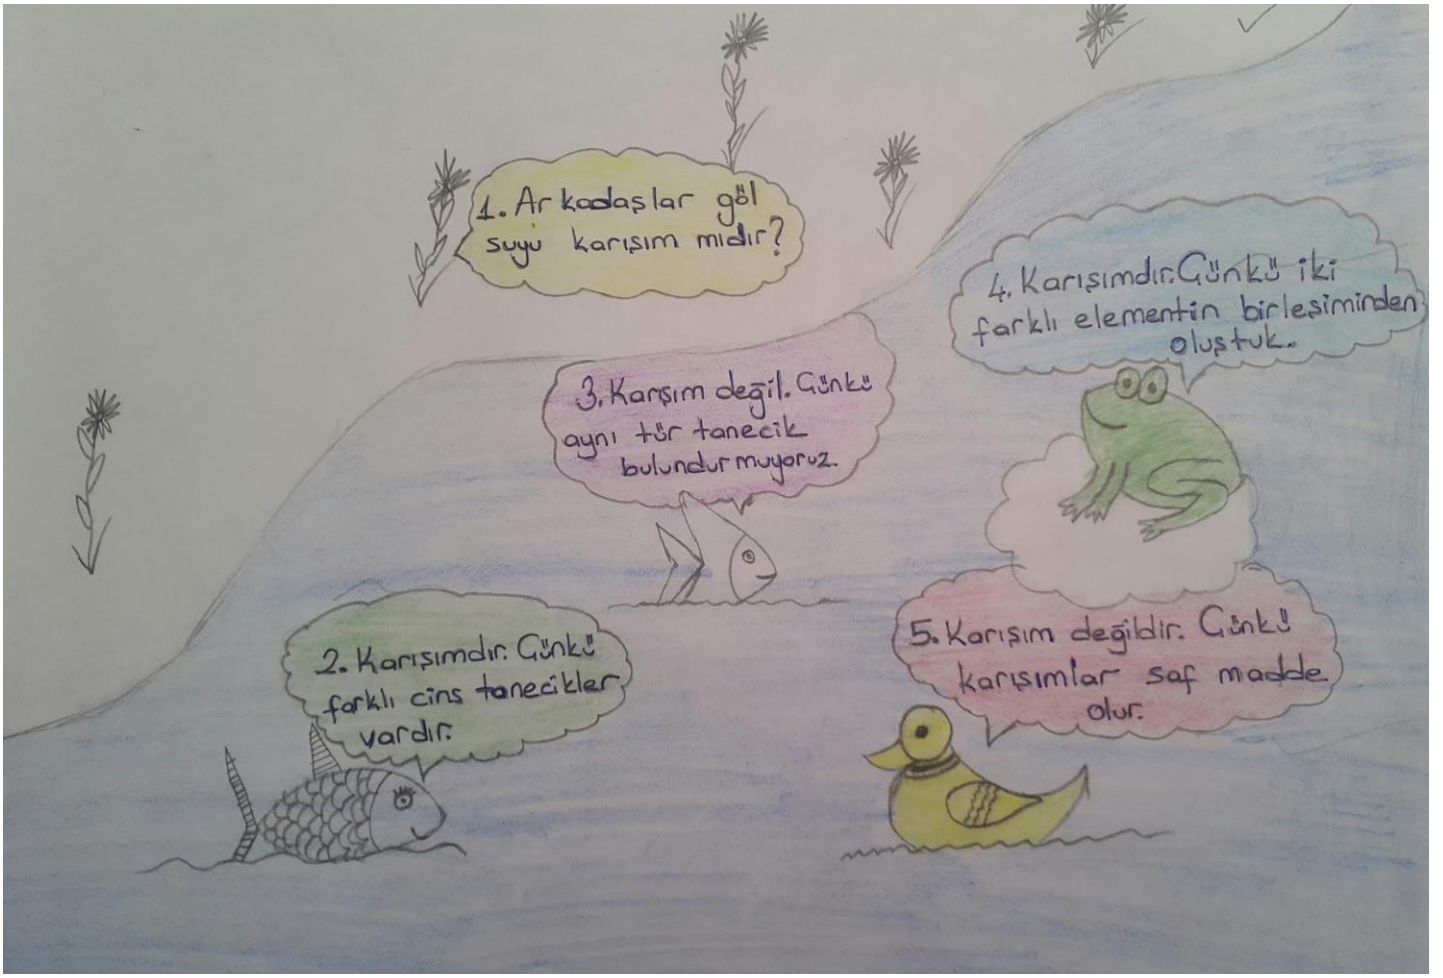 1. Arkadaşlar göl
suyu karışım mıdır?
2. Karışımdır. Çünkü
farklı cins tanecikler
vardır.
3. Karışım değil. Çünkü
aynı tür tanecik
bulundurmuyoruz.
4. Karışımdır. Çünkü iki
farklı elementin birleşiminden
oluştuk.
5. Karışım değildir. Çünkü
karışımlar saf madde
olur.